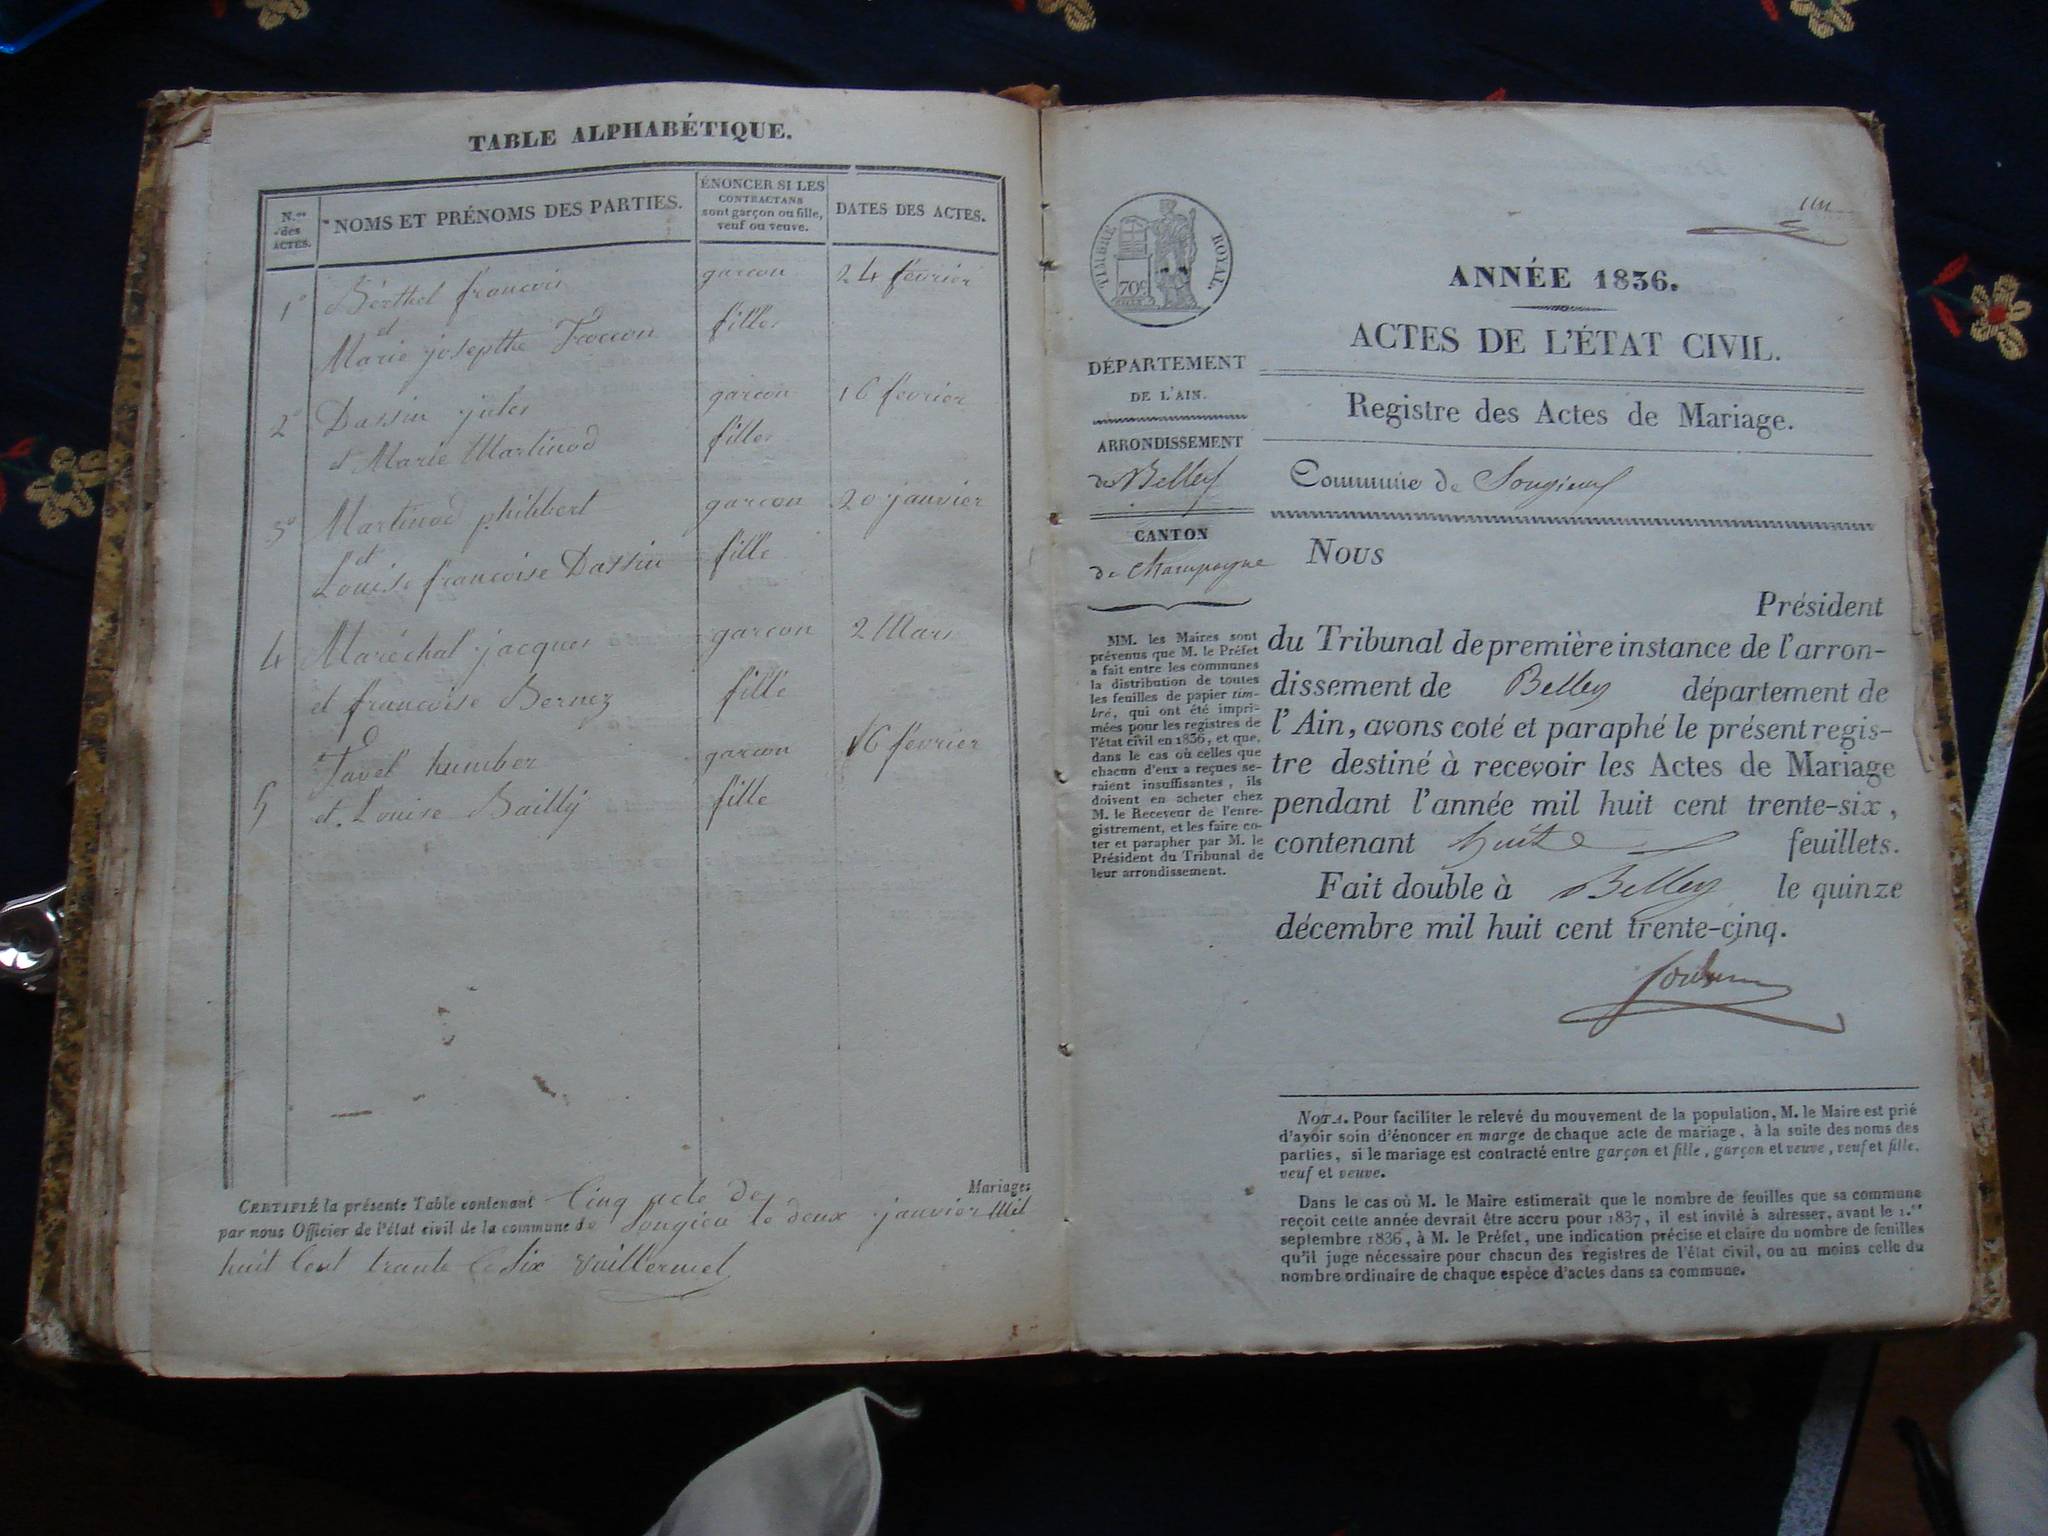 TABLE ALPHABÉTIQUE.
N.os des ACTES.
NOMS ET PRÉNOMS DES PARTIES.
ÉNONCER SI LES
CONTRACTANS
sont garçon ou fille,
veuf ou veuve.
DATES DES ACTES.
1° Berthet francois garcon 24 février
et
Marie josepthe fille
2° Dassin jules garcon 16 fevrier
et Marie Martinod fille
3° Martinod philibert garcon 20 janvier
et
Louise francoise Dassin fille
4 Maréchal jacques garcon 2 Mars
et francoise Bernez fille
Tavel humber garcon 16 fevrier
5 et Louise Bailly fille
Mariages
CERTIFIÉ la présente Table contenant Cinq acte de
par nous Officier de l'état civil de la commune de Songieu le deux janvier Mil
huit Cent trante Six vuillermet
TIMBRE ROYAL.
70c
ANNÉE 1836.
ACTES DE L'ÉTAT CIVIL.
DÉPARTEMENT
DE L'AIN.
Registre des Actes de Mariage.
ARRONDISSEMENT
de Belley
Commune de Songieu
CANTON
de Champagne
MM. les Maires sont
prévenus que M. le Préfet
a fait entre les communes
la distribution de toutes
les feuilles de papier tim-
bré, qui ont été impri-
mées pour les registres de
l'état civil en 1836, et que,
dans le cas où celles que
chacun d'eux a reçues se-
raient insuffisantes, ils
doivent en acheter chez
M. le Receveur de l'enre-
gistrement, et les faire co-
ter et parapher par M. le
Président du Tribunal de
leur arrondissement.
Nous
Président
du Tribunal de première instance de l'arron-
dissement de Belley département de
l'Ain, avons coté et paraphé le présent regis-
tre destiné à recevoir les Actes de Mariage
pendant l'année mil huit cent trente-six,
contenant huit feuillets.
Fait double à Belley le quinze
décembre mil huit cent trente-cinq.
NOTA. Pour faciliter le relevé du mouvement de la population, M. le Maire est prié
d'avoir soin d'énoncer en marge de chaque acte de mariage, à la suite des noms des
parties, si le mariage est contracté entre garçon et fille, garçon et veuve, veuf et fille,
veuf et veuve.
Dans le cas où M. le Maire estimerait que le nombre de feuilles que sa commune
reçoit cette année devrait être accru pour 1837, il est invité à adresser, avant le 1.er
septembre 1836, à M. le Préfet, une indication précise et claire du nombre de feuilles
qu'il juge nécessaire pour chacun des registres de l'état civil, ou au moins celle du
nombre ordinaire de chaque espèce d'actes dans sa commune.